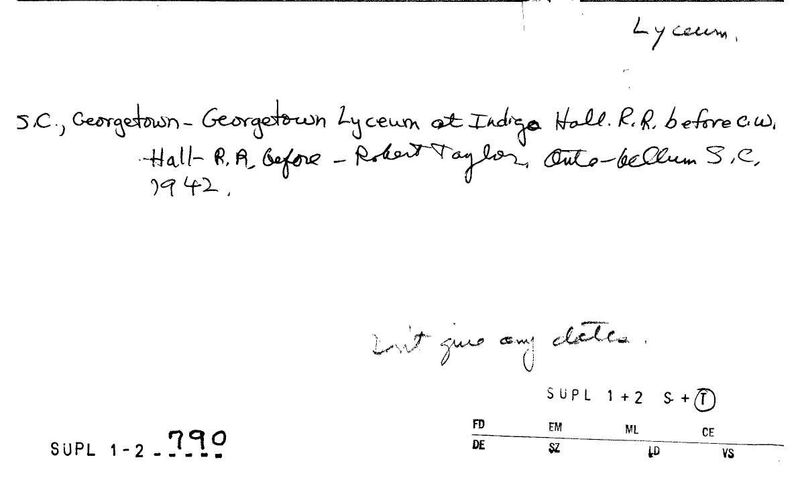 Lyceum.
S.C., Georgetown - Georgetown Lyceum at Indigo Hall. R.R. before C.W.
Hall - R.R. before - Robert Taylor, Ante-bellum S.C,
1942.
Don't give any dates.
SUPL 1+2 S+T
FD EM ML CE
DE SZ LD VS
SUPL 1-2 790